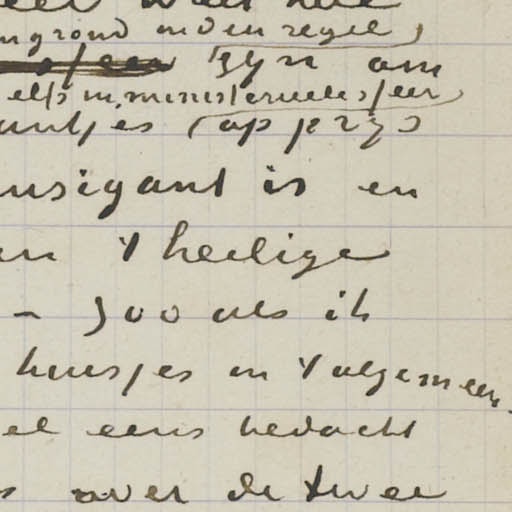 grond onder regel
zyn om
elfs in ministerieele sfeer
antjes (op prijs
nsigant is en
en 't heilige
- zoo als ik
huisjes in 't algemeen
el eens bedacht
s over de twee